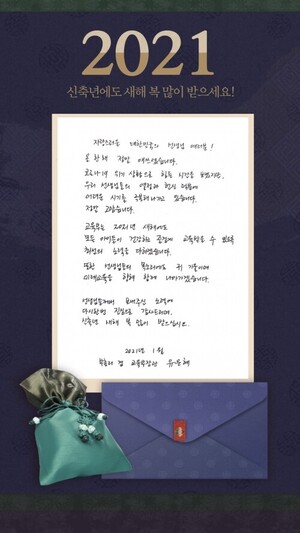 2021
신축년에도 새해 복 많이 받으세요!
자랑스러운 대한민국의 선생님 여러분!
온 한해 정말 애쓰셨습니다.
코로나19 위기 상황으로 힘든 시간을 보냈지만,
우리 선생님들의 열정과 헌신 덕분에
어려운 시기를 극복해나가고 있습니다.
정말 고맙습니다.
교육부는 2021년 새해에도
모든 아이들이 건강하고 공정한 교육을 받을 수 있도록
최선의 노력을 다하겠습니다.
또한 선생님들의 목소리에도 귀 기울이며
미래교육을 향해 함께 나아가겠습니다.
선생님들께서 보내주신 노력에
다시한번 진심으로 감사드리며,
신축년 새해 복 많이 받으십시오.
2021년 1월
부총리 겸 교육부장관 유은혜